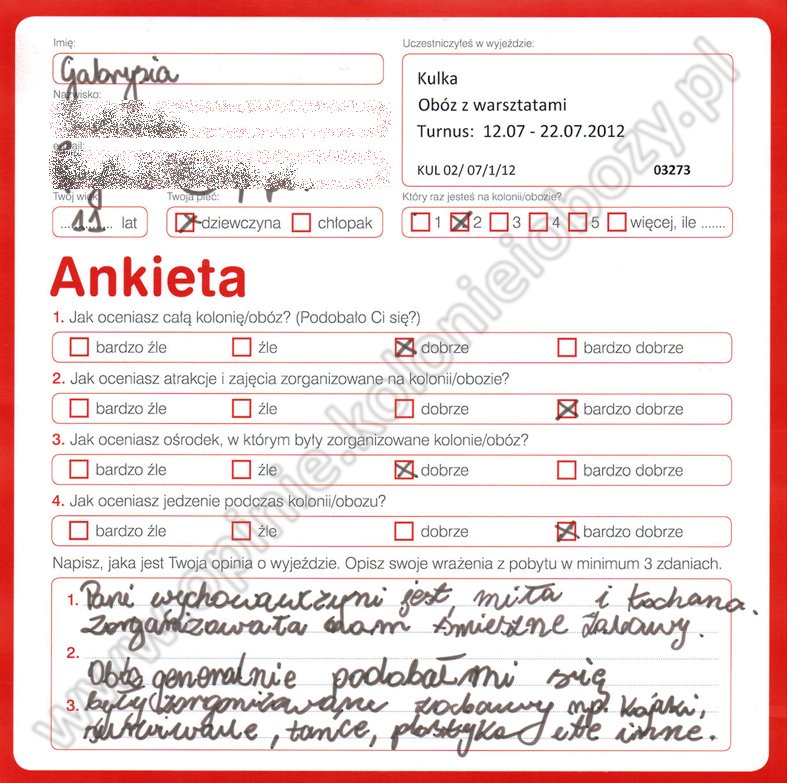 Imię:
Uczestniczyłeś w wyjeździe:
Gabrysia
Kulka
Obóz z warsztatami
Turnus: 12.07 - 22.07.2012
KUL 02/ 07/1/12 03273
Nazwisko:
Twój wiek
Twoja płeć:
Który raz jesteś na kolonii/obozie?
11 lat
dziewczyna chłopak
1 2 3 4 5 więcej, ile .......
Ankieta
1. Jak oceniasz całą kolonię/obóz? (Podobało Ci się?)
bardzo źle źle dobrze bardzo dobrze
2. Jak oceniasz atrakcje i zajęcia zorganizowane na kolonii/obozie?
bardzo źle źle dobrze bardzo dobrze
3. Jak oceniasz ośrodek, w którym były zorganizowane kolonie/obóz?
bardzo źle źle dobrze bardzo dobrze
4. Jak oceniasz jedzenie podczas kolonii/obozu?
bardzo źle źle dobrze bardzo dobrze
Napisz, jaka jest Twoja opinia o wyjeździe. Opisz swoje wrażenia z pobytu w minimum 3 zdaniach.
1. Pani wychowawczyni jest miła i kochana.
Zorganizowała nam śmieszne zabawy.
2.
Obóz generalnie podobał mi się
3. były zorganizowane zabawy np. kajaki,
tańce, plastyka i te inne.
www.opinie.kolonieiobozy.pl